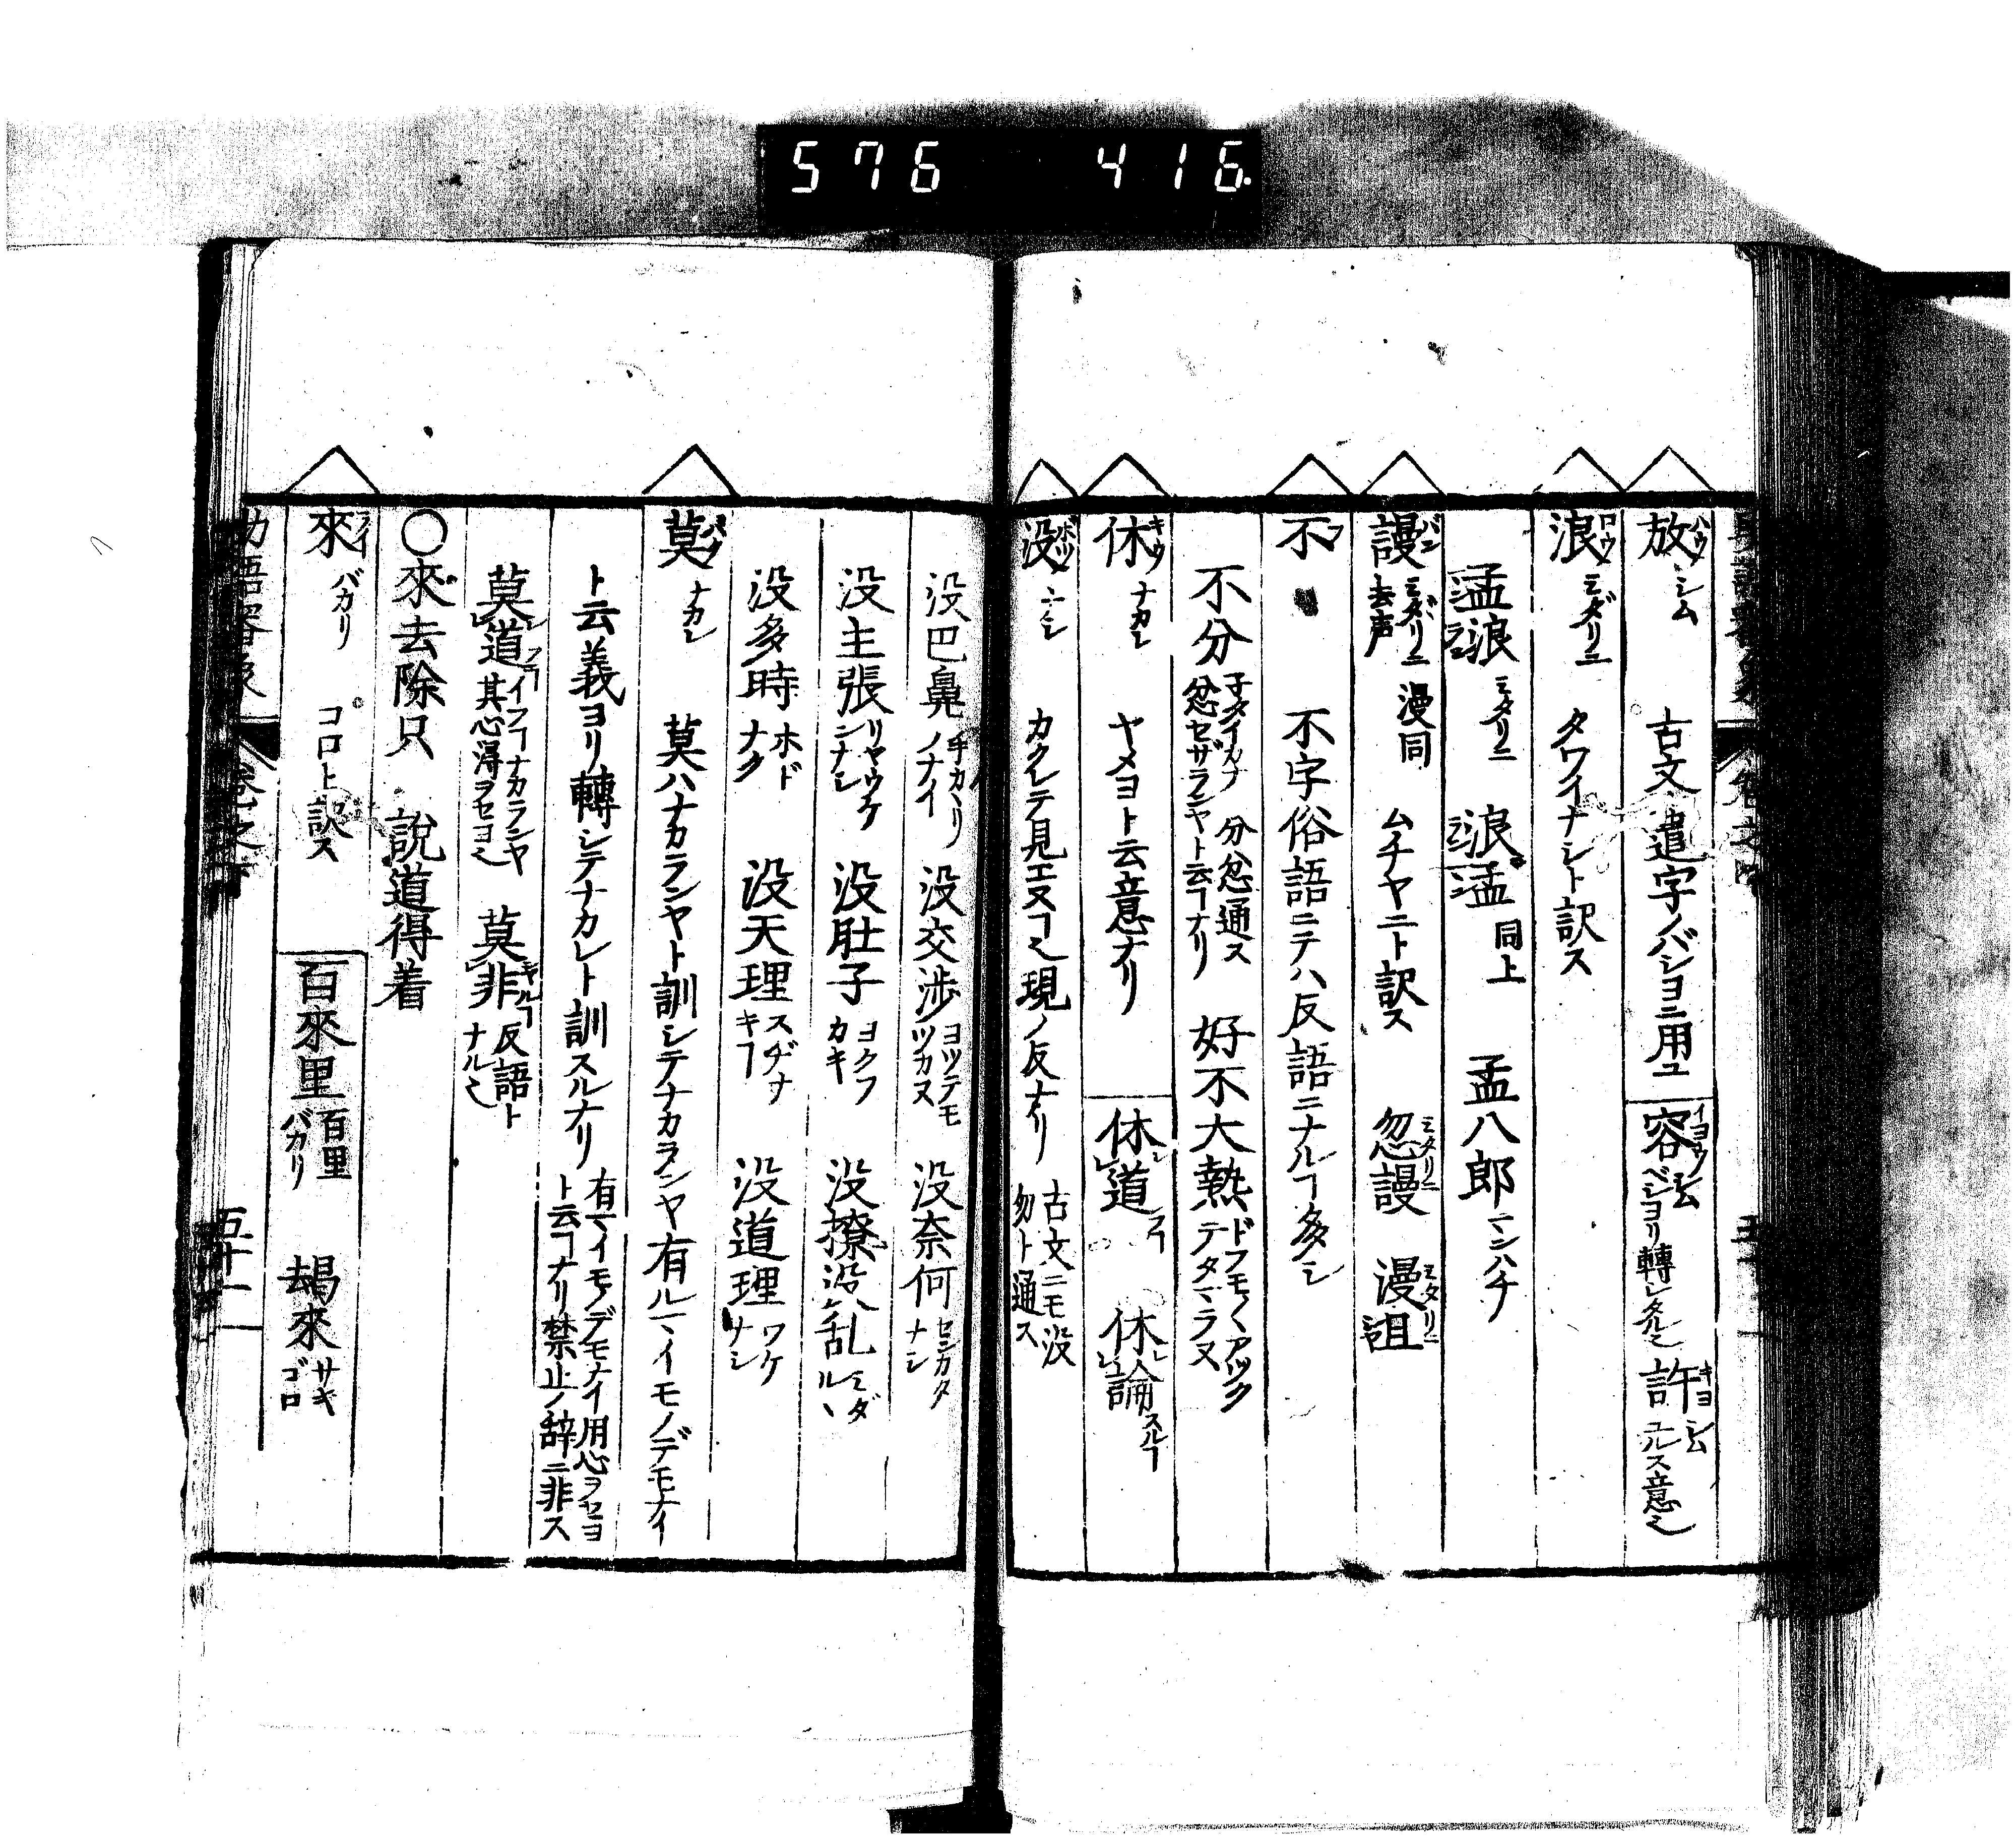 576 416
放ハウ シム 古文遣字ノバシヨニ用ユ 容イヨウ シム ベシヨリ轉シタル也 許キヨ シム ユルス意也
浪ロウ ミダリニ タワイナシト訳ス
孟浪 ミダリニ 浪孟 同上 孟八郎 マンハチ
謾バン ミダリニ 去声 漫同 ムチヤニト訳ス 忽謾ミダリニ 漫詛ミダリニ
不フ 不字俗語ニテハ反語ニナルヿ多シ
不分 分忿通ス 忿セザランヤト云ヿナリ 好不大熱 ドフモ〳〵アツクテタマラヌ
休キウ ナカレ ヤメヨト云意ナリ 休道 フヿ 休論 スルヿ
没ボツ ナシ カクレテ見エヌヿ也現ノ反ナリ 古文ニモ没勿ト通ス
没巴鼻 手カヽリノナイ 没交渉 ヨツテモツカヌ 没奈何 セシカタナシ
没主張 リヤウケンナシ 没肚子 ヨクフカキ 没撩没乱 ミダルヽ
没多時 ホドナク 没天理 スヂナキヿ 没道理 ワケナシ
莫バク ナカレ 莫ハナカランヤト訓シテナカランヤ有ルマイモノデモナイ
ト云義ヨリ轉シテナカレト訓スルナリ 有マイモノデモナイ用心ヲセヨト云ヿナリ禁止ノ辞ニ非ス
莫道 イフヿナカランヤ其心得ヲセヨ也 莫非 反語トナル也
〇來去除只 說道得着
來ライ バカリ コロト訳ス 百來里 百里バカリ 朅來 サキゴロ
五十一